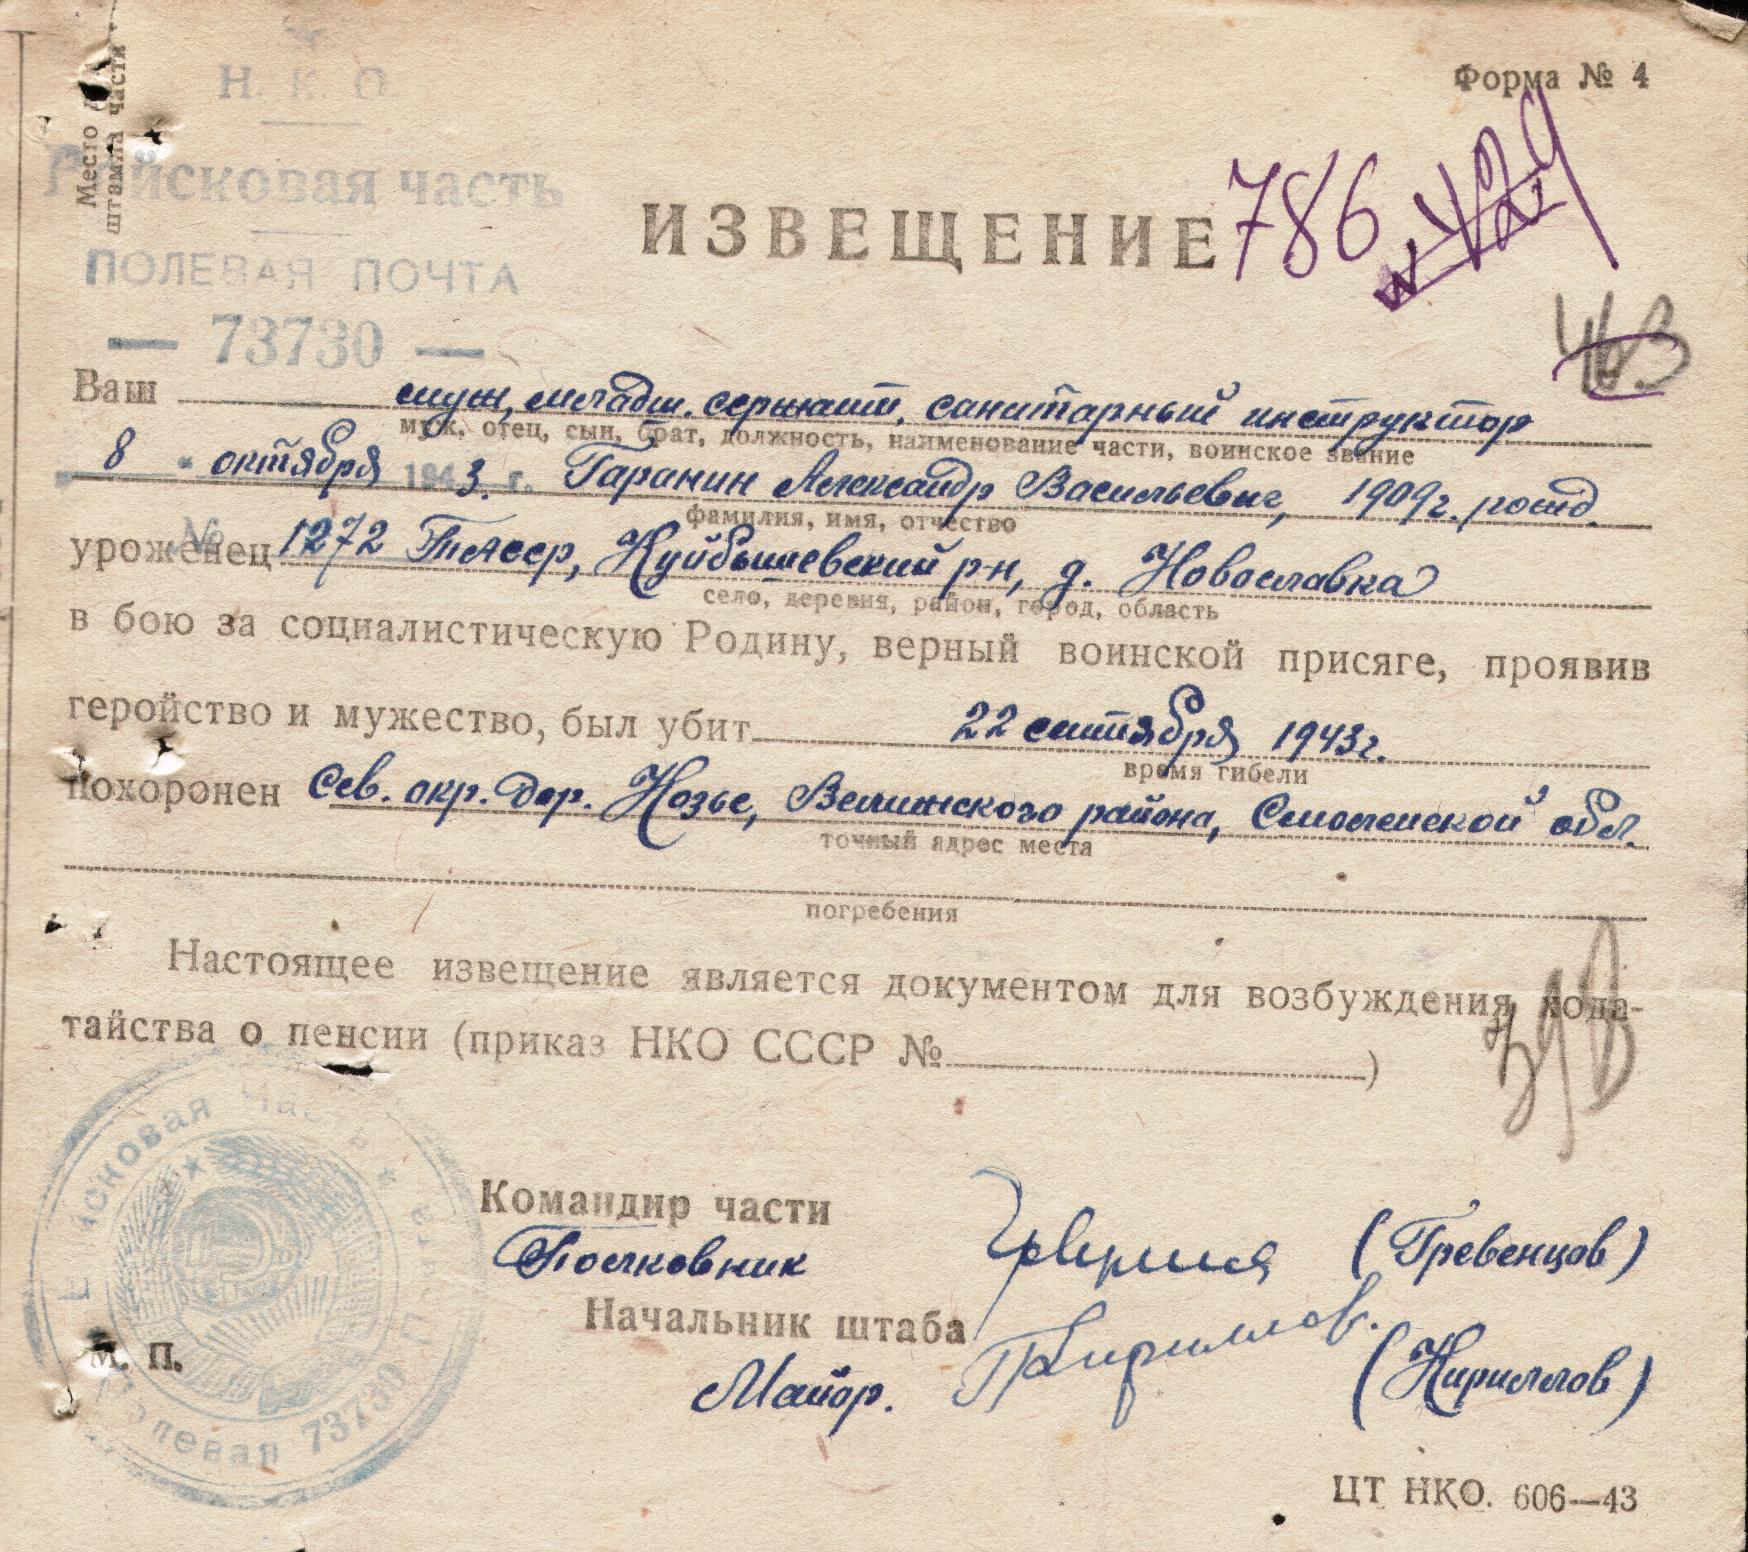 Форма № 4
Место для
штампа части
Н. К. О.
Войсковая часть
ПОЛЕВАЯ ПОЧТА
— 73730 —
ИЗВЕЩЕНИЕ
786
Ваш муж, младш. сержант, санитарный инструктор
муж, отец, сын, брат, должность, наименование части, воинское звание
8 " октября 1943. г. Гаранин Александр Васильевич, 1909 г. рожд.
фамилия, имя, отчество
№ 1272
уроженец ТАССР, Куйбышевский р-н, д. Новославка
село, деревня, район, город, область
в бою за социалистическую Родину, верный воинской присяге, проявив
геройство и мужество, был убит 22 сентября 1943 г.
время гибели
похоронен Сев. окр. дер. Козье, Велижского района, Смоленской обл.
точный адрес места
погребения
Настоящее извещение является документом для возбуждения хода-
тайства о пенсии (приказ НКО СССР № )
Командир части
Полковник (Гревенцов)
Начальник штаба
Кириллов.
Майор. (Кириллов)
М. П.
Войсковая Часть ★ Полевая 73730 Почта ★
ЦТ НКО. 606—43